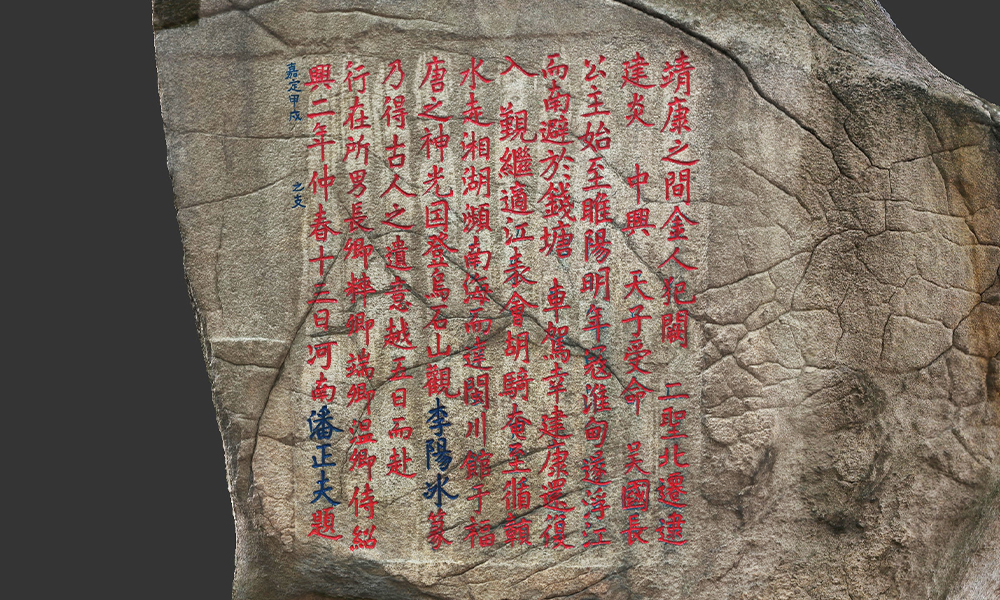 靖康之間金人犯闕 二聖北遷逮
建炎 中興 天子受命 吴國長
公主始至睢陽明年寇淮甸遂浮江
而南避於錢塘 車駕幸建康還復
入 覲繼適江表會胡騎奄至循贛
水走湘湖瀕南海而達閩川館于福
唐之神光因登烏石山觀李陽冰篆
乃得古人之遺意越五日而赴
行在所男長卿粹卿端卿温卿侍紹
興二年仲春十三日河南潘正夫題
嘉定甲戌 之支